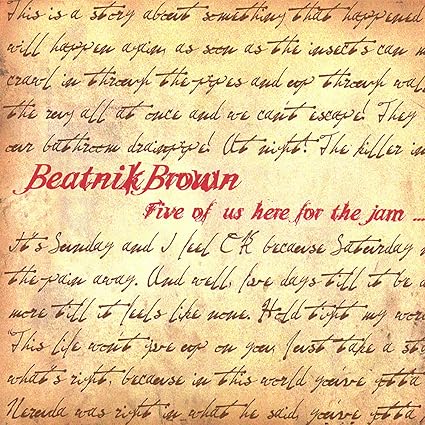 This is a story about something that happened
will happen again, as soon as the insects can m
crawl in through the pipes and cop through wall
the rug all at once and we can't escape! They
our bathroom drainpipe! At night! The killer in
Beatnik Brown
Five of us here for the jam ...
It's Sunday and I feel OK because Saturday n
the pain away. And well, five days till it be a
more till it feels like none. Hold tight my wor
This life won't give up on you, Just take a st
what's right, because in this world you've gotta
Neruda was right in what he said, you've gotta